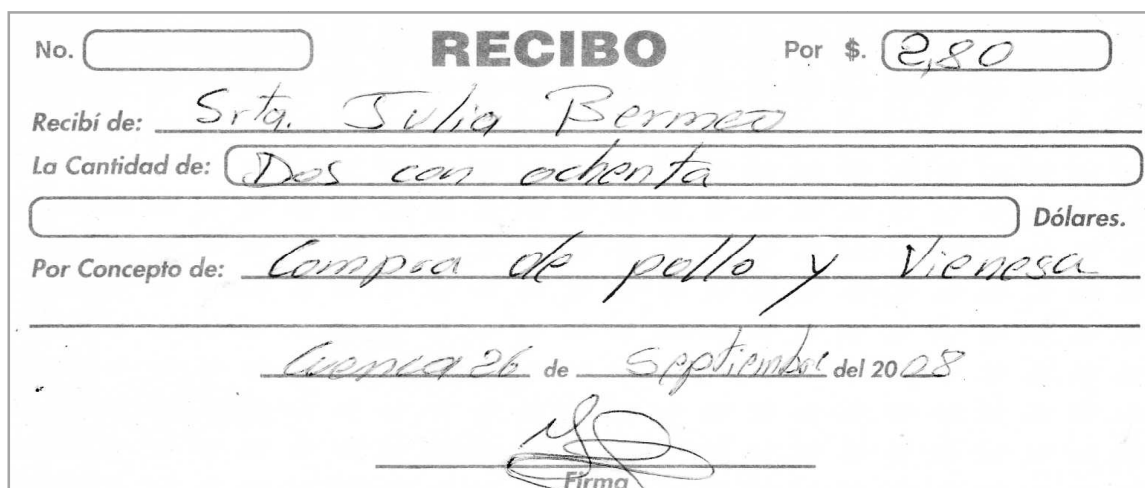 No. RECIBO Por $. 2,80
Recibí de: Srta. Julia Bermeo
La Cantidad de: Dos con ochenta
Dólares.
Por Concepto de: Compra de pollo y Vienesa
Cuenca 26 de Septiembre del 2008
Firma